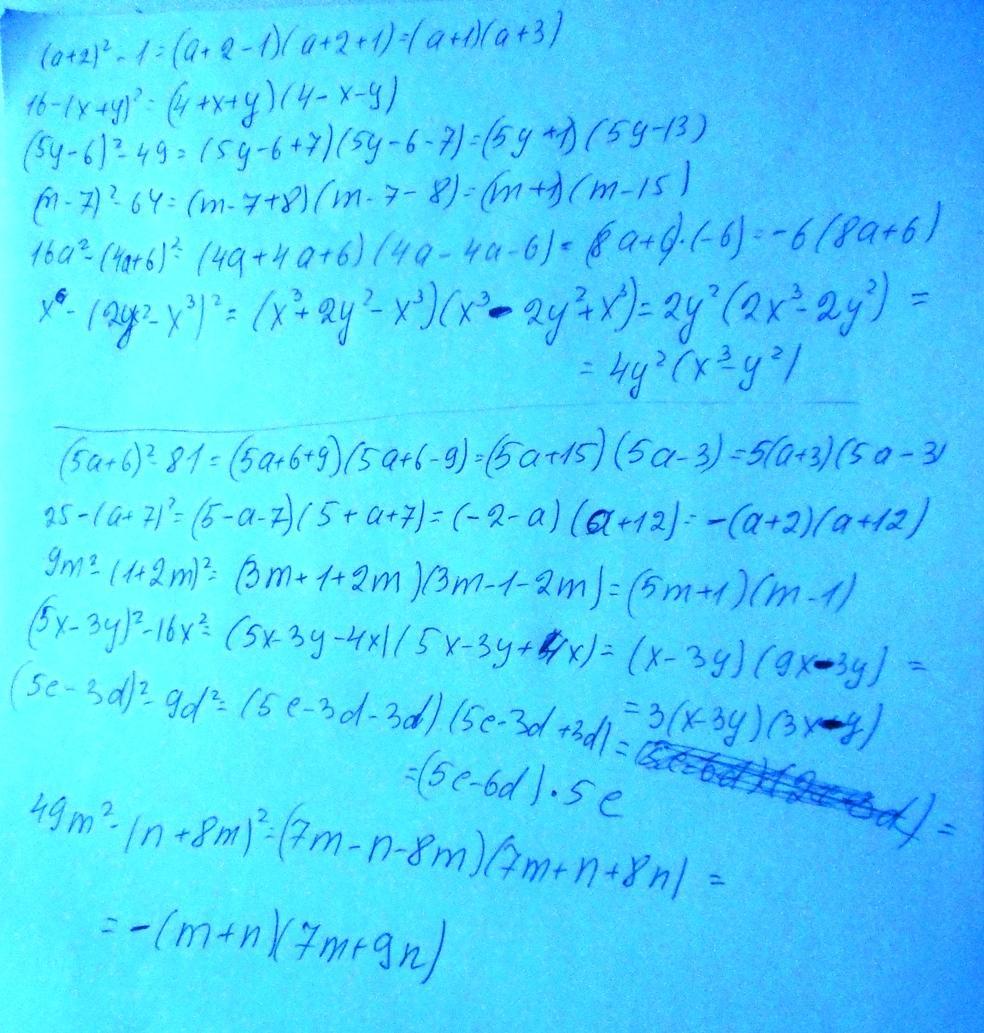 (a+2)² - 1 = (a+2-1)(a+2+1) = (a+1)(a+3)
16-(x+y)² = (4+x+y)(4-x-y)
(5y-6)²-49 = (5y-6+7)(5y-6-7) = (5y+1)(5y-13)
(m-7)²-64 = (m-7+8)(m-7-8) = (m+1)(m-15)
16a²-(4a+6)² = (4a+4a+6)(4a-4a-6) = (8a+6)·(-6) = -6(8a+6)
x⁶-(2y²-x³)² = (x³+2y²-x³)(x³-2y²+x³) = 2y²(2x³-2y²) =
= 4y²(x³-y²)
(5a+6)²-81 = (5a+6+9)(5a+6-9) = (5a+15)(5a-3) = 5(a+3)(5a-3)
25-(a+7)² = (5-a-7)(5+a+7) = (-2-a)(a+12) = -(a+2)(a+12)
9m²-(1+2m)² = (3m+1+2m)(3m-1-2m) = (5m+1)(m-1)
(5x-3y)²-16x² = (5x-3y-4x)(5x-3y+4x) = (x-3y)(9x-3y) =
= 3(x-3y)(3x-y)
(5c-3d)²-9d² = (5c-3d-3d)(5c-3d+3d) = =
= (5c-6d)·5c
49m²-(n+8m)² = (7m-n-8m)(7m+n+8n) =
= -(m+n)(7m+9n)